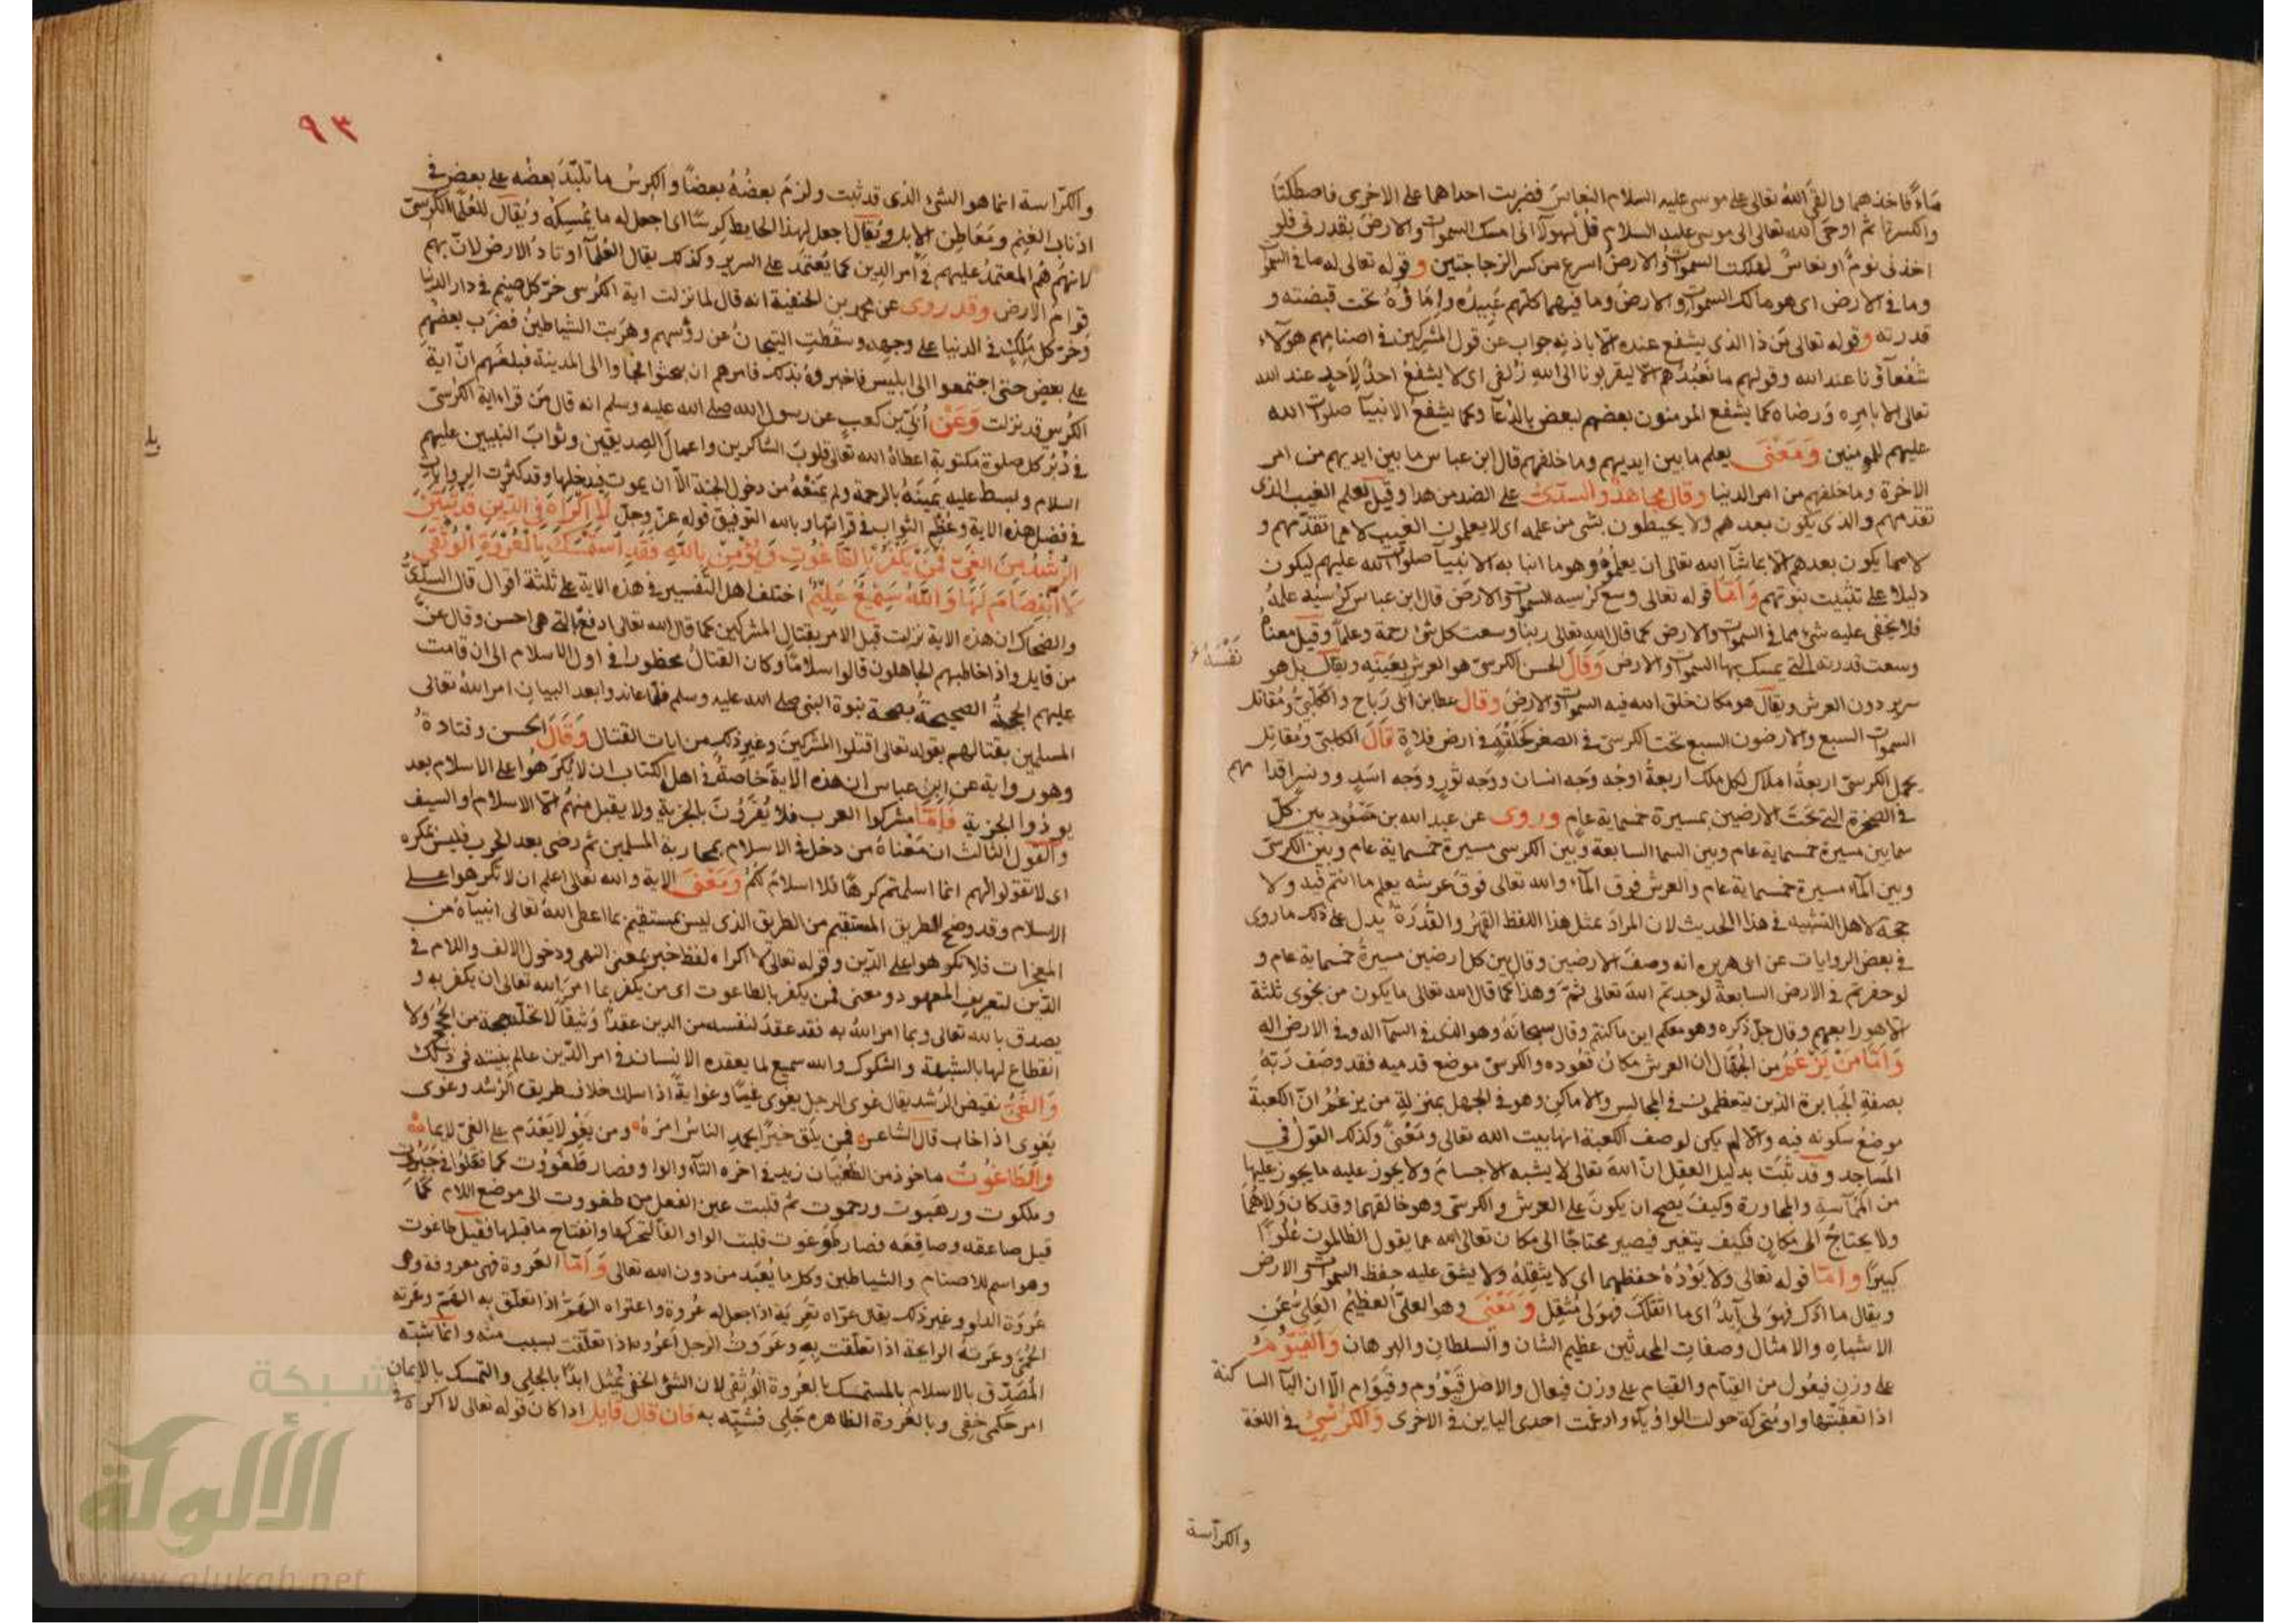 ماءً فاخذهما والقى الله تعالى على موسى عليه السلام النعاس فضربت احداهما على الاخرى فاصطكتا
وانكسرتا ثم اوحى الله تعالى الى موسى عليه السلام قل لهولآء انى امسك السموات والارض بقدرتى فلو
اخذنى نومٌ او نعاسٌ لهلكت السموات والارض اسرع من كسر الزجاجتين وقوله تعالى له ما فى السموات
وما فى الارض اى هو مالك السموات والارض وما فيهما كلهم عبيده وإماؤه تحت قبضته و
قدرته وقوله تعالى من ذا الذى يشفع عنده الا باذنه جواب عن قول المشركين فى اصنامهم هولآء
شفعآؤنا عند الله وقولهم ما نعبدهم الا ليقربونا الى الله زلفى اى لا يشفع احدٌ لاحدٍ عند الله
تعالى الا بامره ورضاه كما يشفع المومنون بعضهم لبعض بالدعآ وكما يشفع الانبيآ صلوات الله
عليهم للمومنين ومعنى يعلم ما بين ايديهم وما خلفهم قال ابن عباس ما بين ايديهم من امر
الاخرة وما خلفهم من امر الدنيا وقال مجاهد والسدى على الضد من هذا وقيل يعلم الغيب الذى
تقدمهم والذى يكون بعدهم ولا يحيطون بشى من علمه اى لا يعلمون الغيب لا مما تقدمهم و
لا مما يكون بعدهم الا بما شآ الله تعالى ان يعلموه وهو ما انبا به الانبيآ صلوات الله عليهم ليكون
دليلا على تثبيت نبوتهم واما قوله تعالى وسع كرسيه السموات والارض قال ابن عباس كرسيه علمه
فلا يخفى عليه شئ مما فى السموات والارض كما قال الله تعالى ربنا وسعت كل شئ رحمة وعلمآ وقيل معناه
وسعت قدرته التى يمسك بها السموات والارض وقال الحسن الكرسى هو العرش بعينه ويقال بل هو
نفسه
سرير دون العرش ويقال هو مكان خلق الله فيه السموات والارض وقال عطا بن ابى رباح والكلبى ومقاتل
السموات السبع والارضون السبع تحت الكرسى فى الصغر كحلقة فى ارض فلاة قال الكلبى ومقاتل
يحمل الكرسى اربعة املاك لكل ملك اربعة اوجه وجه انسان ووجه ثور ووجه اسد ووجه نسر اقدامهم
فى الصخرة التى تحت الارضين بمسيرة خمسماية عام وروى عن عبد الله بن مسعود بين كل
سمايين مسيرة خمسماية عام وبين السما السابعة وبين الكرسى مسيرة خمسماية عام وبين الكرسى
وبين المآء مسيرة خمسماية عام والعرش فوق المآء والله تعالى فوق عرشه يعلم ما انتم فيه ولا
حجة لاهل التشبيه فى هذا الحديث لان المراد بمثل هذا اللفظ القهر والقدرة يدل على ذلك ما روى
فى بعض الروايات عن ابى هريره انه وصف الارضين وقال بين كل ارضين مسيرة خمسماية عام و
لو حفرتم فى الارض السابعة لوجدتم الله تعالى ثم وهذا كما قال الله تعالى ما يكون من نجوى ثلثة
الا هو رابعهم وقال جل ذكره وهو معكم اين ما كنتم وقال سبحانه وهو الذى فى السمآ اله وفى الارض اله
واما من يزعم من الجهال ان العرش مكان قعوده والكرسى موضع قدميه فقد وصف ربه
بصفة الجبابرة الذين يتعظمون فى المجالس والاماكن وهو فى الجهل بمنزلة من يزعم ان الكعبة
موضع سكونه فيه والا لم يكن لوصف الكعبة انها بيت الله تعالى ومعنىً وكذلك القول فى
المساجد وقد ثبت بدليل العقل ان الله تعالى لا يشبه الاجسام ولا يجوز عليه ما يجوز عليها
من المماسة والمجاورة وكيف يصح ان يكون على العرش والكرسى وهو خالقهما وقد كان ولا هما
ولا يحتاج الى مكان فكيف يتغير فيصير محتاجًا الى مكان تعالى الله عما يقول الظالمون علوًا
كبيرًا واما قوله تعالى ولا يؤده حفظهما اى لا يثقله ولا يشق عليه حفظ السموات والارض
ويقال ما ادك فهو لى آيدٌ اى ما اثقلك فهو لى مثقل ومعنى وهو العلى العظيم العلى عن
الاشباه والامثال وصفات المحدثين عظيم الشان والسلطان والبرهان والقيوم
على وزن فيعول من القيام والقيام على وزن فيعال والاصل قيووم وقيوام الا ان اليآ الساكنة
اذا تعقبتها واو متحركة حولت الواو يآء وادغمت احدى الياين فى الاخرى والكرسى فى اللغة
والكراسة
٩٣
والكراسة انما هو الشئ الذى قد ثبت ولزم بعضه بعضًا والكرس ما تلبد بعضه على بعض فى
اذناب الغنم ومعاطن الابل ويقال اجعل لهذا الحايط كرسًا اى اجعل له ما يمسكه ويقال للعلمآ الكرسى
لانهم هم المعتمد عليهم فى امر الدين كما يعتمد على السرير وكذلك يقال العلمآ اوتاد الارض لان بهم
قوام الارض وقد روى عن محمد بن الحنفية انه قال لما نزلت اية الكرسى خر كل صنم فى دار الدنيا
وخر كل ملك فى الدنيا على وجهه وسقطت التيجان عن رؤسهم وهربت الشياطين فضرب بعضهم
على بعض حتى اجتمعوا الى ابليس فاخبروه بذلك فامرهم ان يبحثوا فجاوا الى المدينة فبلغهم ان اية
الكرسى قد نزلت وعن ابى بن كعب عن رسول الله صلى الله عليه وسلم انه قال من قرا اية الكرسى
فى دبر كل صلوة مكتوبة اعطاه الله تعالى قلوب الشاكرين واعمال الصديقين وثواب النبيين عليهم
السلام وبسط عليه يمينه بالرحمة ولم يمنعه من دخول الجنة الا ان يموت فيدخلها وقد كثرت الروايات
فى فضل هذه الاية وعظم الثواب فى قراتها وبالله التوفيق قوله عز وجل لا اكراه فى الدين قد تبين
الرشد من الغى فمن يكفر بالطاغوت ويؤمن بالله فقد استمسك بالعروة الوثقى
لا انفصام لها والله سميع عليم اختلف اهل التفسير فى هذه الاية على ثلثة اقوال قال السدى
والضحاك ان هذه الاية نزلت قبل الامر بقتال المشركين كما قال الله تعالى ادفع بالتى هى احسن وقال عز
من قايل واذا خاطبهم الجاهلون قالوا سلامًا وكان القتال محظورا فى اول الاسلام الى ان قامت
عليهم الحجة الصحيحة بصحة نبوة النبى صلى الله عليه وسلم فلما عاندوا بعد البيان امر الله تعالى
المسلمين بقتالهم بقوله تعالى اقتلوا المشركين وغير ذلك من ايات القتال وقال الحسن وقتادة
وهو رواية عن ابن عباس ان هذه الاية خاصة فى اهل الكتاب ان لا يكرهوا على الاسلام بعد
يودوا الجزية فاما مشركوا العرب فلا يقرون بالجزية ولا يقبل منهم الا الاسلام او السيف
والقول الثالث ان معناه من دخل فى الاسلام بمحاربة المسلمين ثم رضى بعد الحرب فليس بمكره
اى لا تقولوا لهم انما اسلمتم كرهًا فلا اسلام لكم ومعنى الاية والله تعالى اعلم ان لا تكرهوا على
الاسلام وقد وضح الطريق المستقيم من الطريق الذى ليس بمستقيم بما اعطى الله تعالى انبيآه من
المعجزات فلا تكرهوا على الدين وقوله تعالى لا اكراه لفظ خبر بمعنى النهى ودخول الالف واللام فى
الدين لتعريف المعهود ومعنى فمن يكفر بالطاغوت اى من يكفر بما امر الله تعالى ان يكفر به و
يصدق بالله تعالى وبما امر الله به فقد عقد لنفسه من الدين عقدًا وثيقًا لا تحله حجة من الحجج ولا
انقطاع لها بالشبهة والشكوك والله سميع لما يعقده الانسان فى امر الدين عالم بنيته فى ذلك
والغى نقيض الرشد يقال غوى الرجل يغوى غيًا وغوايةً اذا سلك خلاف طريق الرشد وغوى
يغوى اذا خاب قال الشاعر فمن يلق خيرًا يحمد الناس امره ومن يغو لا يعدم على الغى لايما
والطاغوت ماخوذ من الطغيان زيد فى اخره التآء والواو فصار طغووت كما فعلوا فى جبروت
وملكوت ورهبوت ورحموت ثم قلبت عين الفعل من طغووت الى موضع اللام كما
قيل صاعقه وصاقعه فصار طوغوت قلبت الواو الفآ لتحركها وانفتاح ما قبلها فقيل طاغوت
وهو اسم للاصنام والشياطين وكل ما يعبد من دون الله تعالى واما العروة فهى معروفة وهى
عروة الدلو وغير ذلك يقال عراه تعريةً اذا جعل له عروة واعتراه الهم اذا تعلق به الهم وعرته
الحمى وعرته الرايحة اذا تعلقت به وعروت الرجل اعروه اذا تعلقت بسبب منه وانما شبه
المصدق بالاسلام بالمستمسك بالعروة الوثقى لان الشئ الخفى يمثل ابدًا بالجلى والتمسك بالايمان
امر حكمى خفى وبالعروة الظاهره جلى فشبه به فان قال قايل اذا كان قوله تعالى لا اكراه فى
شبكة
الألوكة
www.alukah.net